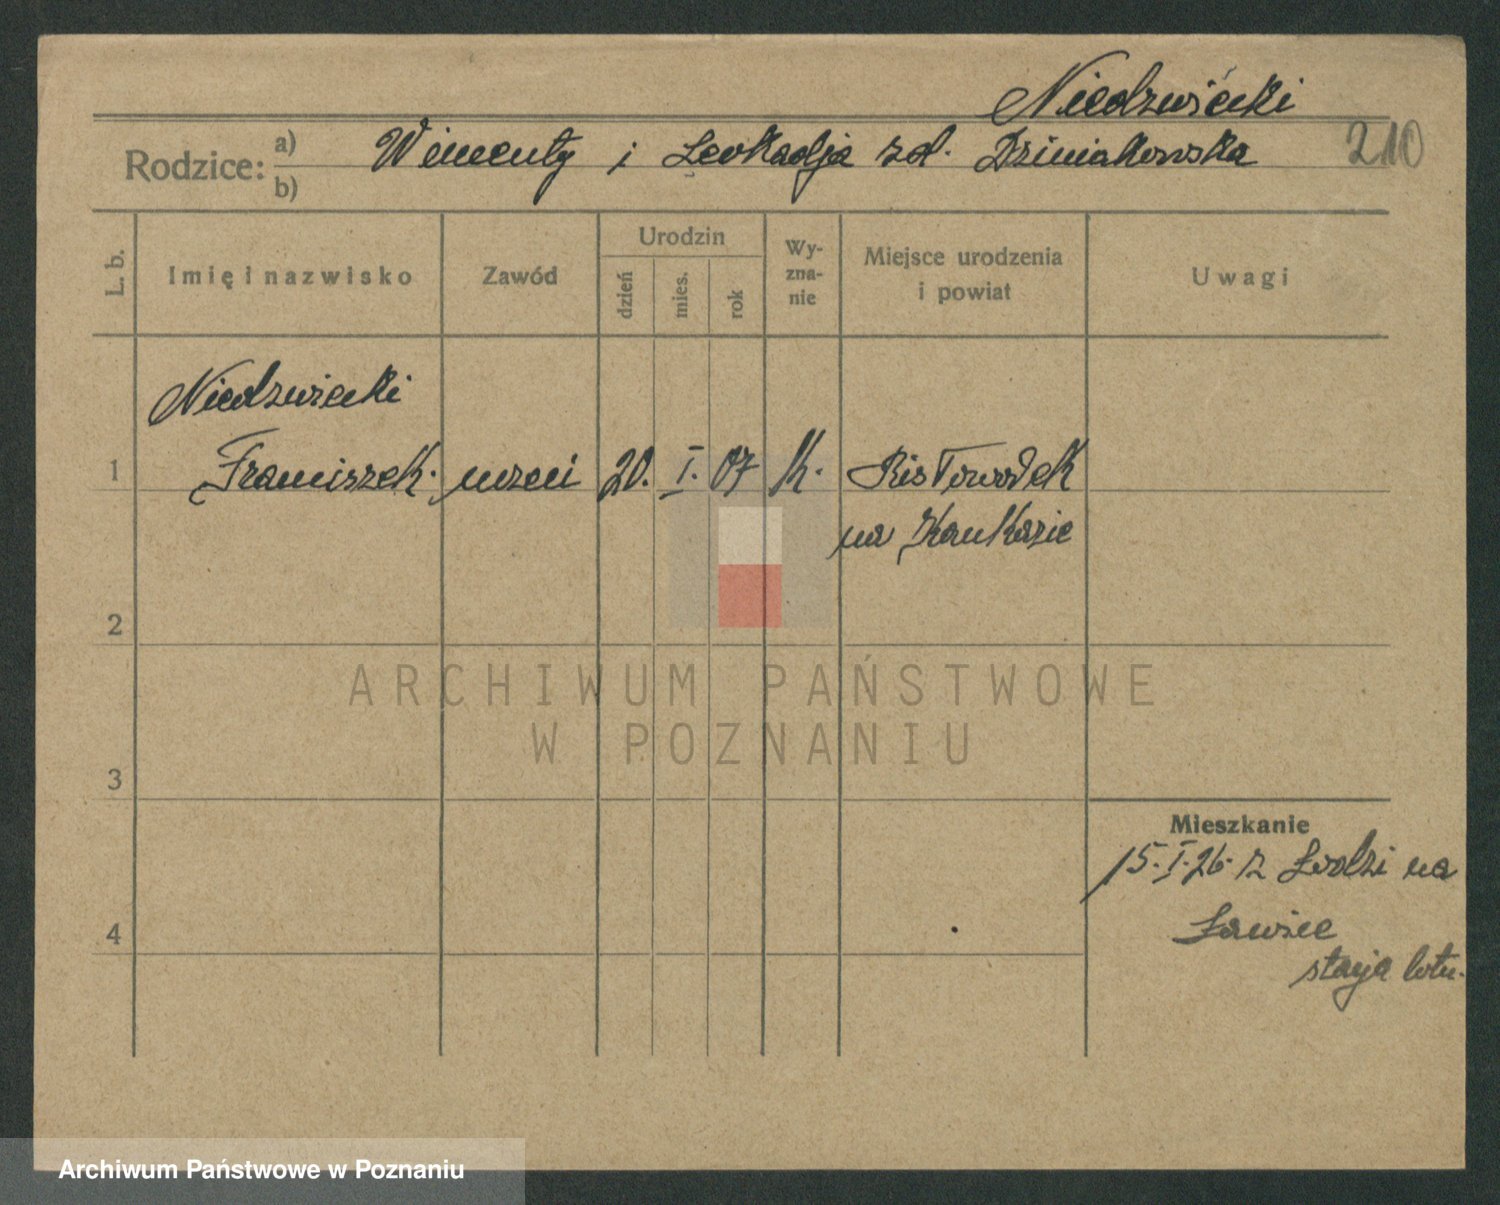 Niedzwiecki
Rodzice: a) Wincenty i Leokadja zd. Dziniakowska 210
b)
L. b.
Imię i nazwisko
Zawód
Urodzin
dzień
mies.
rok
Wy-
zna-
nie
Miejsce urodzenia
i powiat
Uwagi
Niedzwiecki
1 Franciszek. uczeń 20. I. 07 k.
na Kaukazie
2
ARCHIWUM PAŃSTWOWE
W POZNANIU
3
Mieszkanie
15.I.26. z Łodzi na
4 Ławice
stacja lotn.
Archiwum Państwowe w Poznaniu